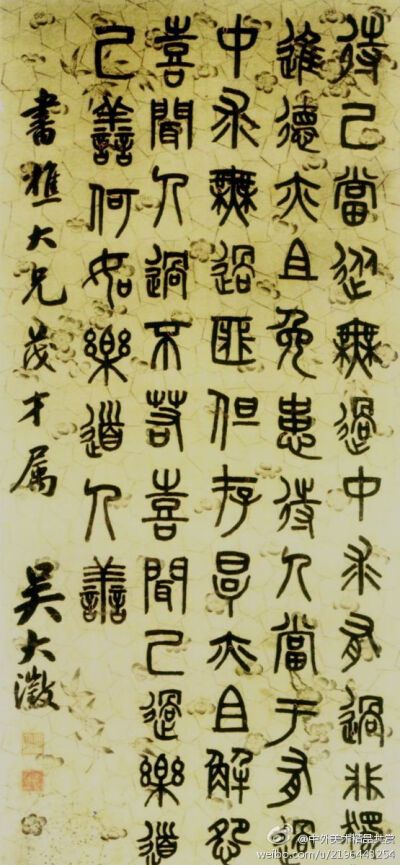 待己當從無過中求有過非獨
進德亦且免患待人當于有過
中求無過匪但存厚亦且解怨
喜聞人過不若喜聞己過樂道
己善何如樂道人善
書樵大兄茂才属 吳大澂
@中外美术精品共赏
weibo.com/u/2196443254